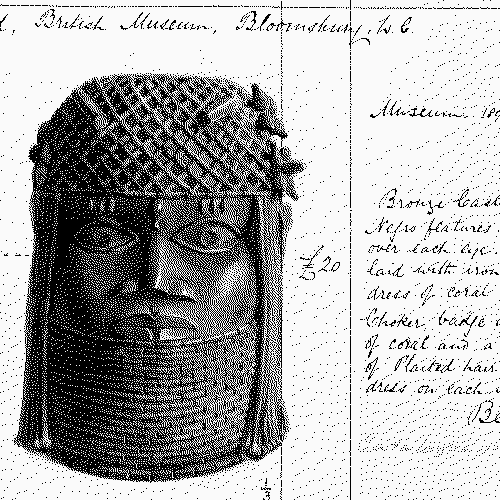 British Museum, Bloomsbury, W.C.
Museum 189
£20
Bronze Cast
Negro features
over each eye.
laid with iron
dress of coral
Choker, badge
of coral and a
of Plaited hair
dress on each
Be
1/3